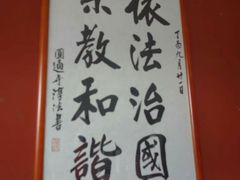 丁丙九月廿一日
依法治國
宗教和諧
圓通寺淳法書